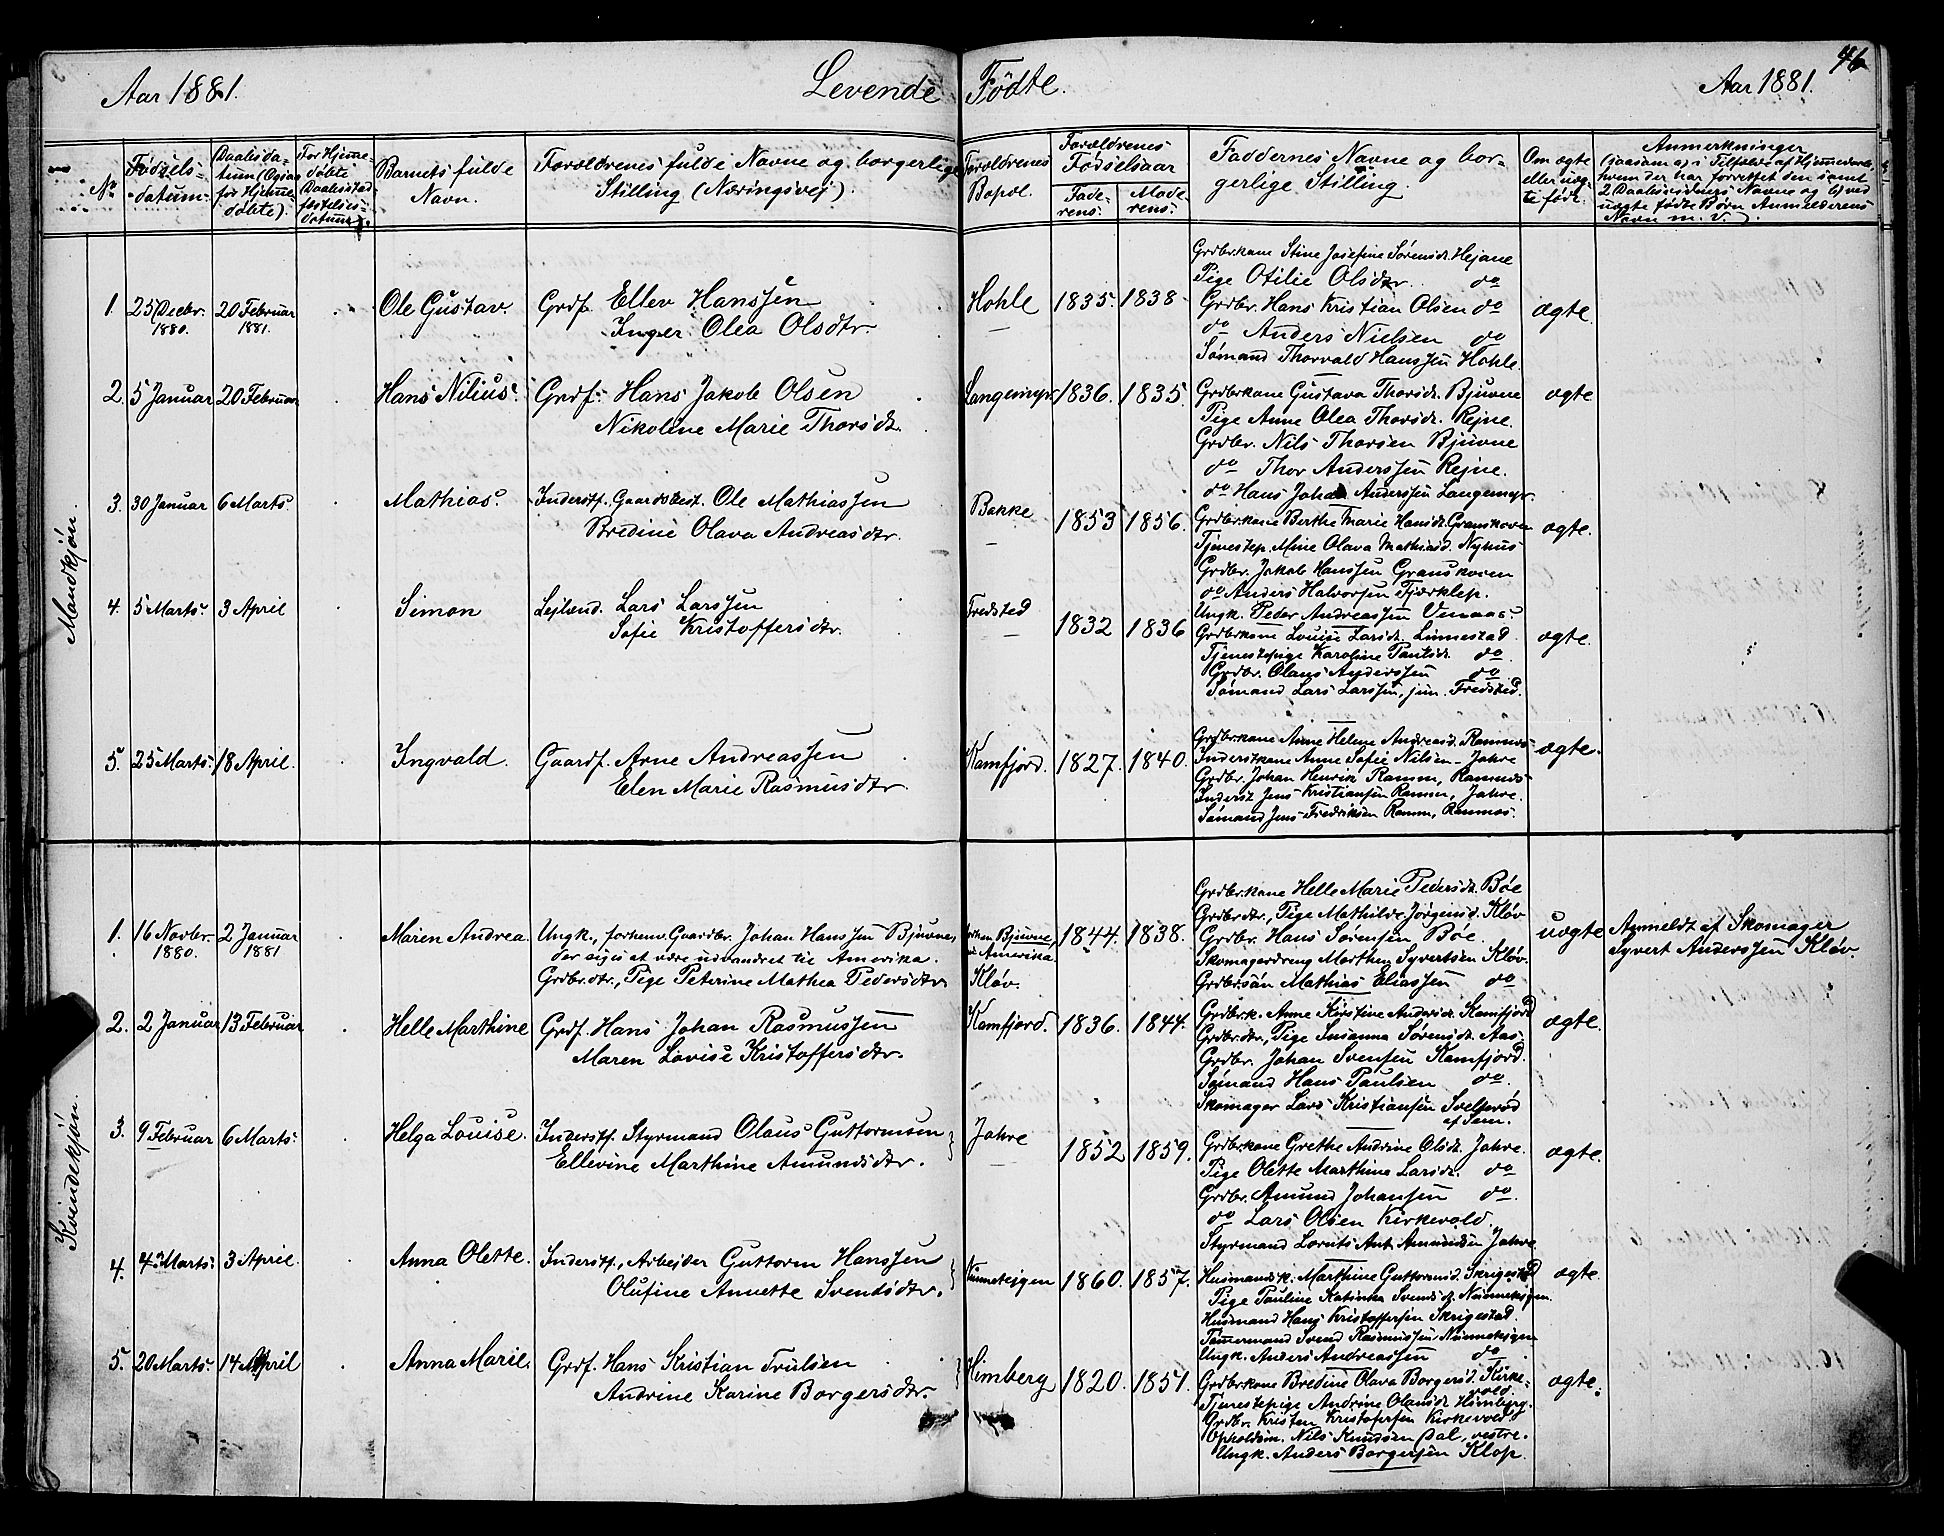 Aar 1881.
Levende Fødte.
Aar 1881.
46
No
Fødsels-
datum.
Daabsda-
tum (Ogsaa
for Hjemme
døbte).
For Hjemme-
døbte
Daabsstad
fæstelses-
datum.
Barnets fulde
Navn.
Forældrenes fulde Navne og borgerlige
Stilling (Næringsvej).
Forældrenes
Bopæl.
Forældrenes
Fødselsaar
Fade-
rens.
Mode-
rens.
Faddernes Navne og bor-
gerlige Stilling.
Om ægte
eller uæg-
te født.
Anmerkninger
(saasom a) i Tilfælde af Hjemmedaab,
hvem der har forrettet den samt
2 Daabsvidners Navne og b) ved
uægte fødte Børn Anmelderens
Navn m. v.).
Mandkjøn.
1. 25 Decbr. 1880. 20 Februar 1881. Ole Gustav. Grdf. Ellev Hanssen
Inger Olea Olsdtr.
Hohle 1835. 1838 ægte.
Grdbr.kone Stine Josefine Sørensdt. Hejane
Pige Otilie Olsdtr. do
Grdbr. Hans Kristian Olsen do
do Anders Nielsen do
Sømand Thorvald Hanssen Hohle.
2. 5 Januar 20 Februar Hans Nilius. Grdf. Hans Jakob Olsen
Nikoline Marie Thorsdt.
Langemyr 1836. 1835. ægte
Grdbr.kone Gustava Thorsdt. Bjuvne
Pige Anne Olea Thorsdt. Rejne.
Grdbr. Nils Thorsen Bjuvne
do Thor Anderssen Rejne.
do Hans Johan Anderssen Langemyr.
3. 30 Januar 6 Marts. Mathias. Inderstf. Gaardsbest. Ole Mathiassen
Bredine Olava Andreasdtr.
Bakke 1853 1856. ægte.
Grdbr.kone Berthe Marie Hansdt. Granskoven
Tjenestep. Mine Olava Mathiasd. Nyhus
Grdbr. Jakob Hanssen Granskoven
do Anders Halvorsen Fjærklep.
Ungk. Peder Andreassen Vennaas.
4. 5 Marts. 3 April Simon Lejlænd. Lars Larssen
Sofie Kristoffersdtr.
Fredsted 1832 1836 ægte.
Grdbr.kone Louise Larsdt. Linnestad
Tjenestepige Karoline Paulsdt. do
Grdbr. Olaus Anderssen do
Sømand Lars Larssen, jun. Fredsted.
5. 25 Marts. 18 April. Ingvald. Gaardf. Arne Andreassen
Elen Marie Rasmusdtr.
Kamfjord. 1827. 1840. ægte.
Grdbr.kone Anne Helene Andreasd. Ramnæs
Inderstkone Anne Sofie Nilsen Jahre
Grdbr. Johan Henrik Ramm, Ramnæs
Inderst Jens Kristiansen Ramm, Jahre.
Sømand Jens Fredriksen Ramm, Ramnæs.
Kvindekjøn.
1. 16 Novbr. 1880. 2 Januar 1881 Maren Andrea. Ungk., forhenv. Gaardbr. Johan Hanssen Bjuvne,
der siges at være udvandret til Amerika.
Grdbr.dtr., Pige Peterine Mathea Pedersdtr.
Bjuvne,
i Amerika.
Kløv.
1844. 1838. uægte
Grdbr.kone Helle Marie Pedersdt. Bøe
Grdbr.dtr., Pige Mathilde Jørgensd. Kløv
Grdbr. Hans Sørensen Bøe.
Skomagerdreng Marthin Syvertsen Kløv.
Grdbr.søn Mathias Eliassen do
Anmeldt af Skomager
Syvert Anderssen Kløv.
2. 2 Januar 13 Februar Helle Marthine Grdf. Hans Johan Rasmussen
Maren Lovise Kristoffersdtr.
Kamfjord. 1836. 1844. ægte.
Grdbr.k. Anne Kirstine Andersdt. Kamfjord
Grdbr.dtr., Pige Susanna Sørensdt. Aas.
Grdbr. Johan Svensen Kamfjord.
Sømand Hans Paulsen do.
Skomager Lars Kristiansen Svelprød
af Sem.
3. 9 Februar 6 Marts. Helga Louise. Inderstf. Styrmand Olaus Guttormsen
Ellevine Marthine Amundsdtr.
Jahre 1852 1859. ægte.
Grdbr.kone Grethe Andrine Olsdt. Jahre.
Pige Olette Marthine Larsdt. do
Grdbr. Amund Johansen do.
do Lars Olsen Kirkevold.
Styrmand Lorents Ant. Amundsen Jahre
4. 4 Marts. 3 April. Anna Olette. Inderstf., Arbejder Guttorm Hanssen
Olufine Annette Svendsdtr.
Nunnekejgen 1860. 1857. ægte.
Husmandsk. Marthine Guttormsd. Skrigestad
Pige Pauline Katinka Svendsdt. Nunnekejgen.
Husmand Hans Kristoffersen Skrigestad.
Tømmermand Svend Rasmussen Nunnekejgen
Ungk. Anders Andreassen do.
5. 20 Marts. 14 April Anna Marie. Grdf. Hans Kristian Trulsen
Andrine Karine Borgersdtr.
Himberg 1820. 1851. ægte.
Grdbr.kone Bredine Olava Borgersd. Kirke-
vold.
Tjenestepige Andrine Olausdt. Himberg.
Grdbr. Kristen Kristofersen Kirkevold
Opholdsm. Nils Knudsen Dal, vestre.
Ungk. Anders Borgersen Klop.